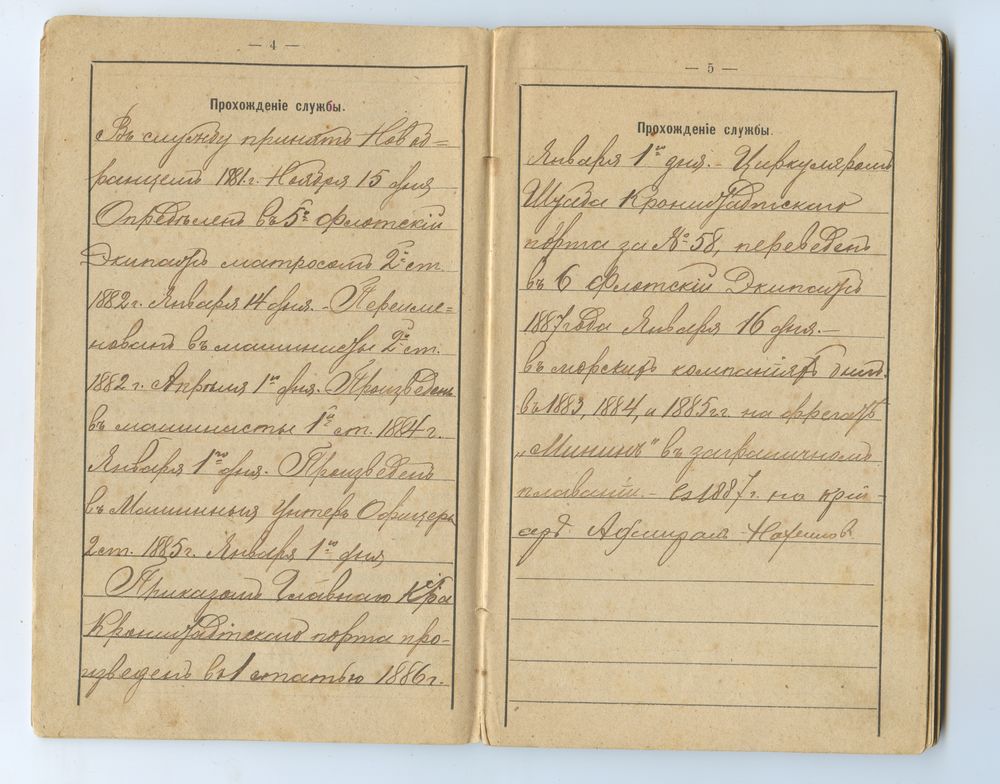 — 4 —
Прохожденіе службы.
Въ службу принятъ Новоб=
ранцемъ 1881 г. Ноября 15 дня
Опредѣленъ въ 5й Флотскій
Экипажъ матросомъ 2й ст.
1882 г. Января 14 дня. - Переиме=
нованъ въ машинисты 2й ст.
1882 г. Апрѣля 1го дня. Произведенъ
въ машинисты 1й ст. 1884 г.
Января 1го дня. Произведенъ
въ Машинныя Унтеръ Офицеры
2 ст. 1885 г. Января 1го дня
Приказомъ Главнаго К-ра
Кронштадтскаго порта про-
изведенъ въ 1 статью 1886 г.
— 5 —
Прохожденіе службы.
Января 1го дня. - Циркуляромъ
Штаба Кронштадтскаго
порта за № 58, переведенъ
въ 6 Флотскій Экипажъ
1887 года Января 16 дня. -
въ морскихъ компаніяхъ былъ.
въ 1883, 1884, и 1885 г.г. на фрегатѣ
„Мининъ" въ заграничномъ
плаваніи. - Съ 1887 г. на крей-
серѣ Адмиралъ Нахимовъ